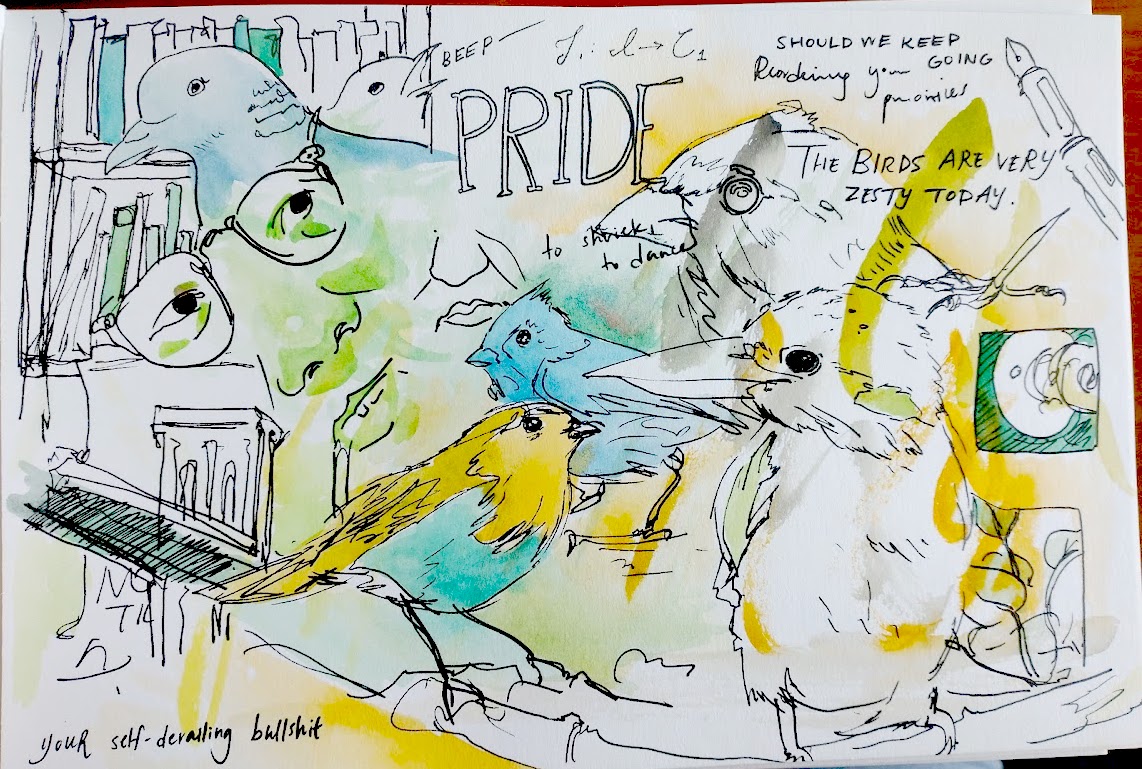 BEEP
PRIDE
SHOULD WE KEEP
GOING
Reordering your
priorities
THE BIRDS ARE VERY
ZESTY TODAY.
to shriek,
to dance
your self-derailing bullshit